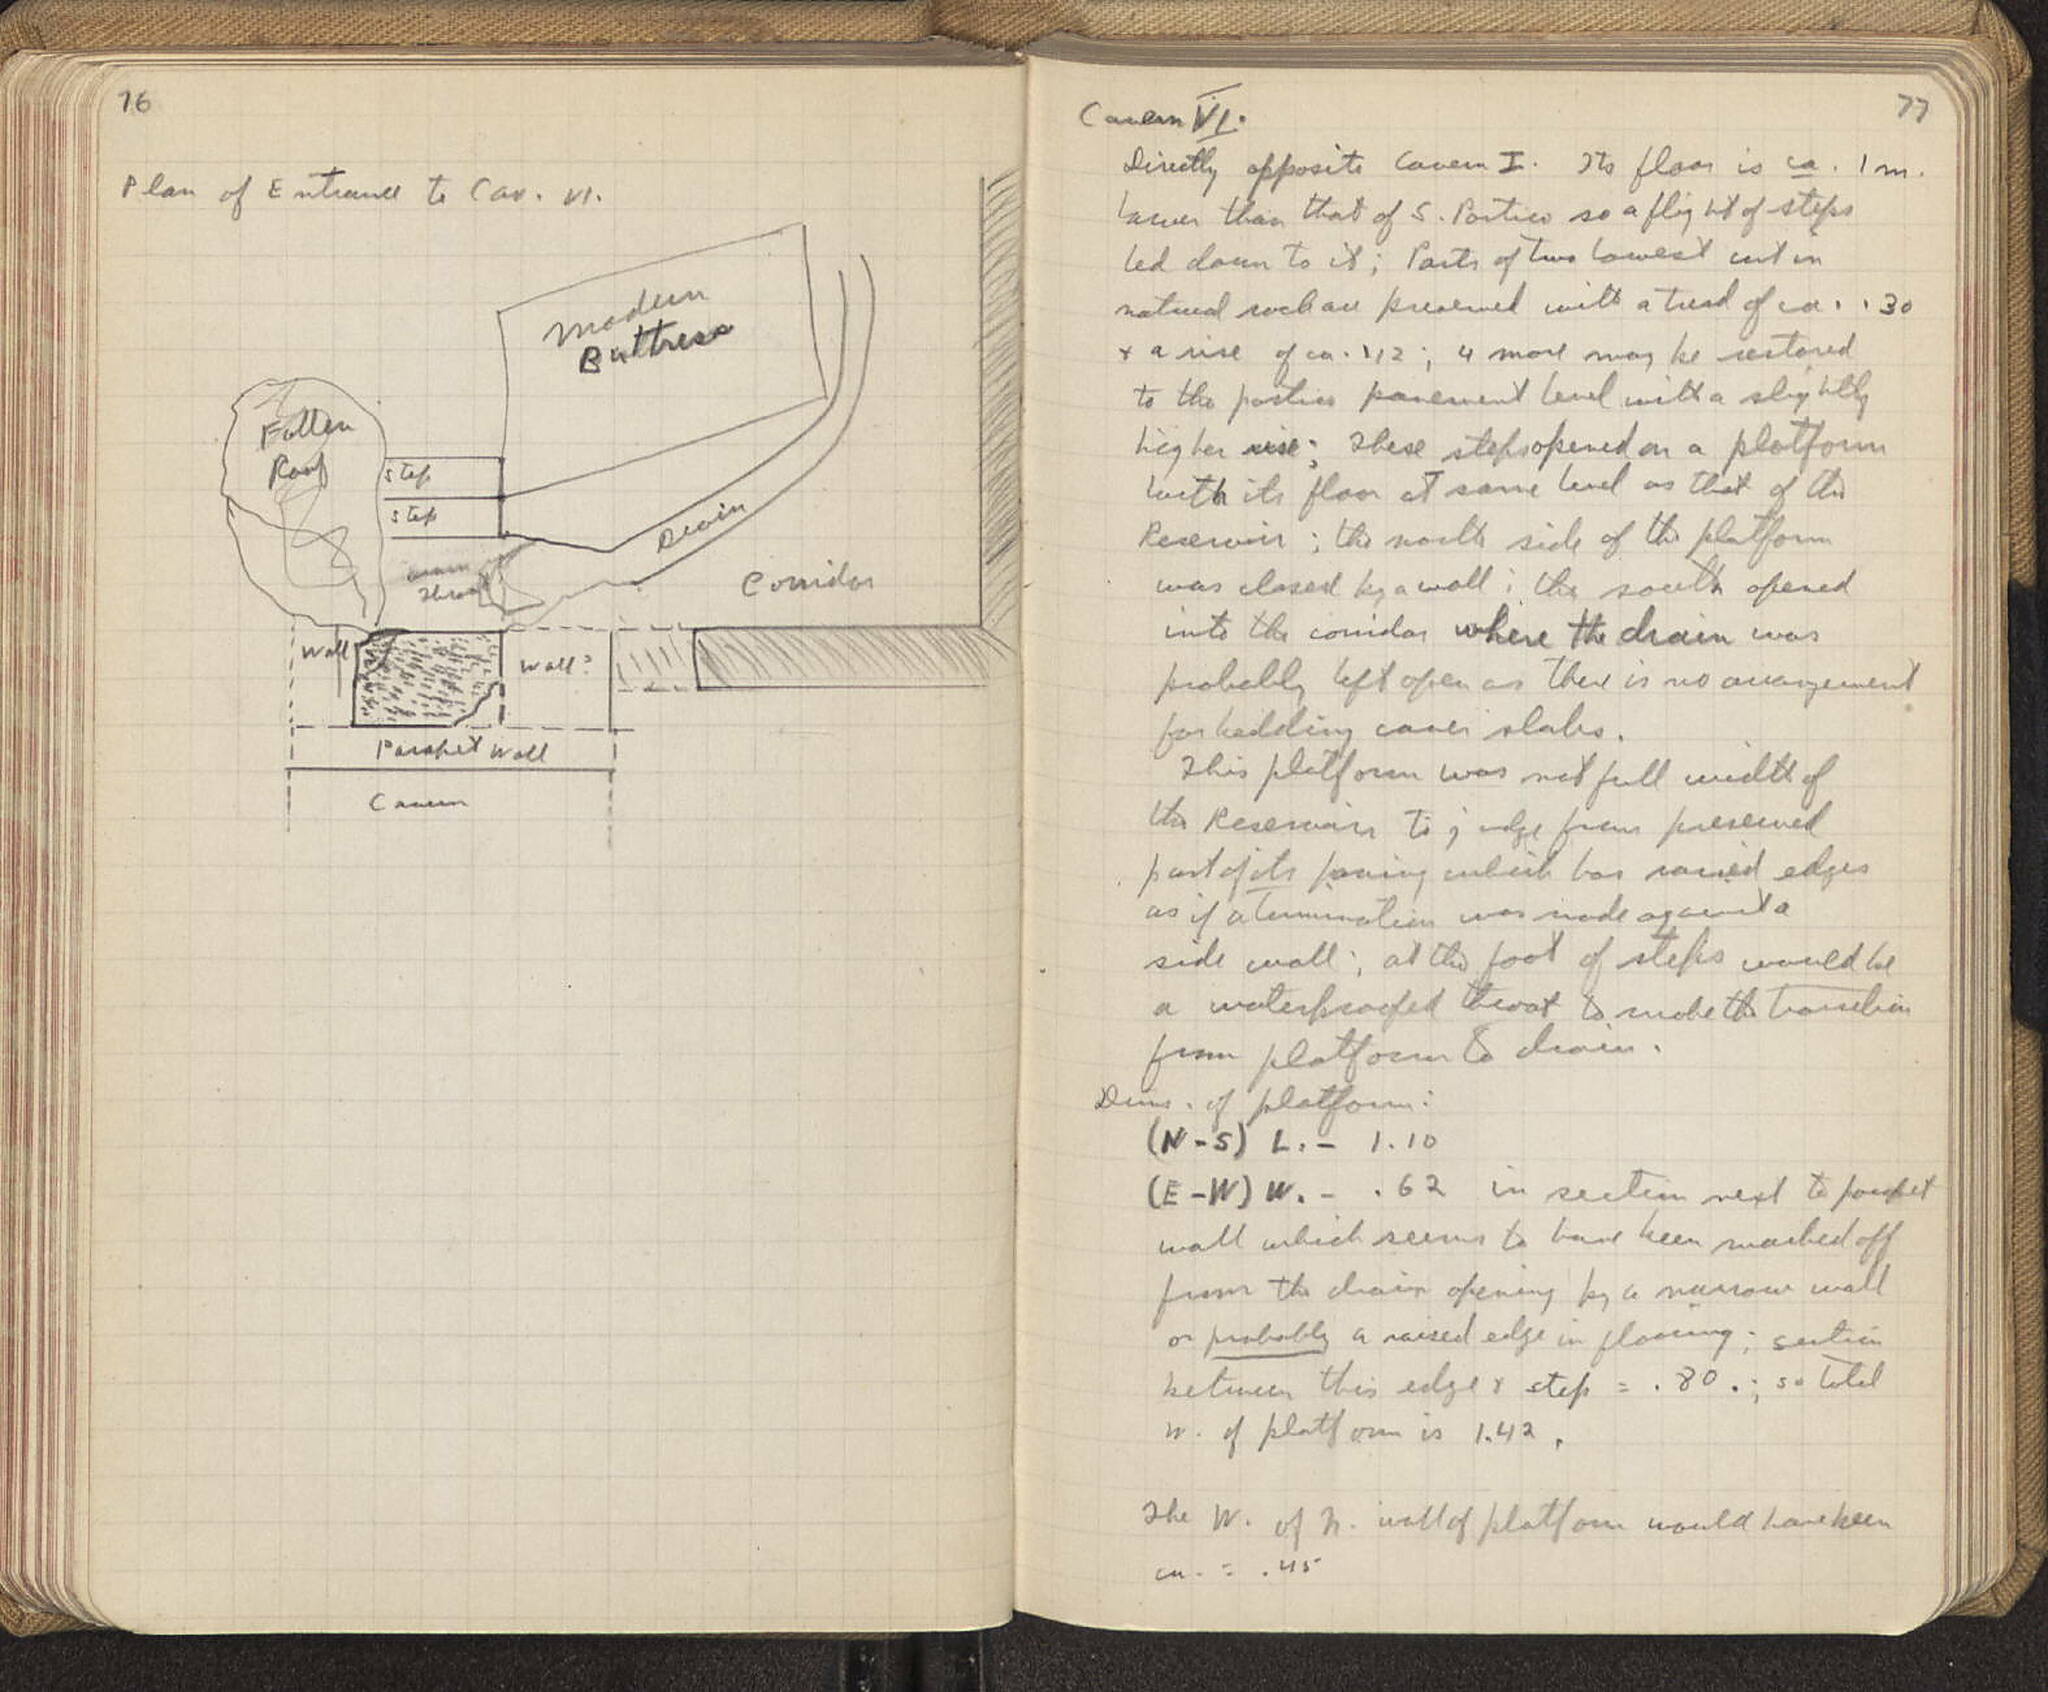 76
Plan of Entrance to Cav. VI.
Modern
Buttress
Fallen
Roof
Step
Step
Drain
Throat
Corridor
Wall
Wall?
Parapet Wall
Cavern
77
Cavern VI.
Directly opposite Cavern I. Its floor is ca. 1 m.
lower than that of S. Portico so a flight of steps
led down to it; Parts of two lowest cut in
natural rock are preserved with a tread of ca. .30
+ a rise of ca. .12; 4 more may be restored
to the portico pavement level with a slightly
higher rise; These steps opened on a platform
with its floor at same level as that of the
Reservoir; the north side of the platform
was closed by a wall; the south opened
into the corridor where the drain was
probably left open as there is no arrangement
for bedding cover slabs.
This platform was not full width of
the Reservoir to judge from preserved
part of its paving which has raised edges
as if a termination was made against a
side wall; at the foot of steps would be
a waterproofed throat to make the transition
from platform to drain.
Dims. of platform:
(N-S) L. - 1.10
(E-W) W. - .62 in section next to parapet
wall which seems to have been marked off
from the drain opening by a narrow wall
or probably a raised edge in flooring; section
between this edge & step = .80.; so total
W. of platform is 1.42.
The W. of N. wall of platform would have been
ca. = .45